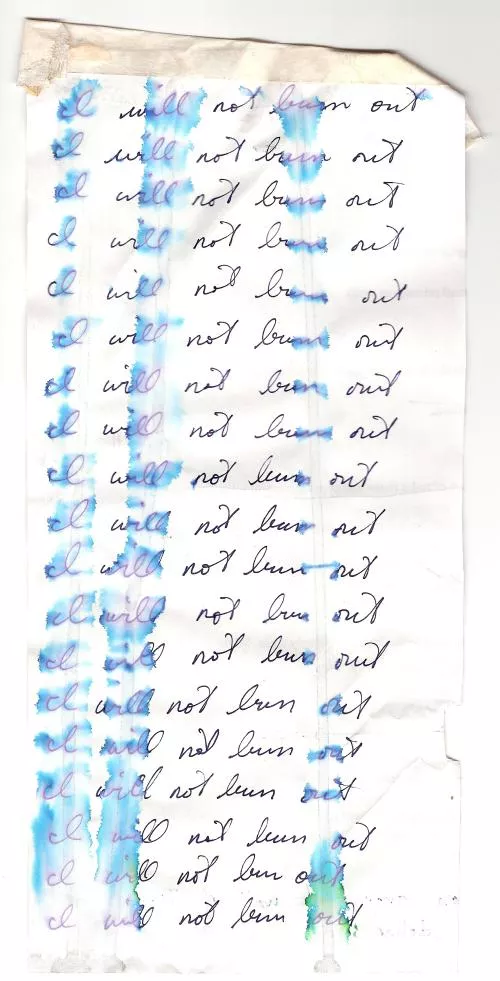 I will not burn out
I will not burn out
I will not burn out
I will not burn out
I will not burn out
I will not burn out
I will not burn out
I will not burn out
I will not burn out
I will not burn out
I will not burn out
I will not burn out
I will not burn out
I will not burn out
I will not burn out
I will not burn out
I will not burn out
I will not burn out
I will not burn out